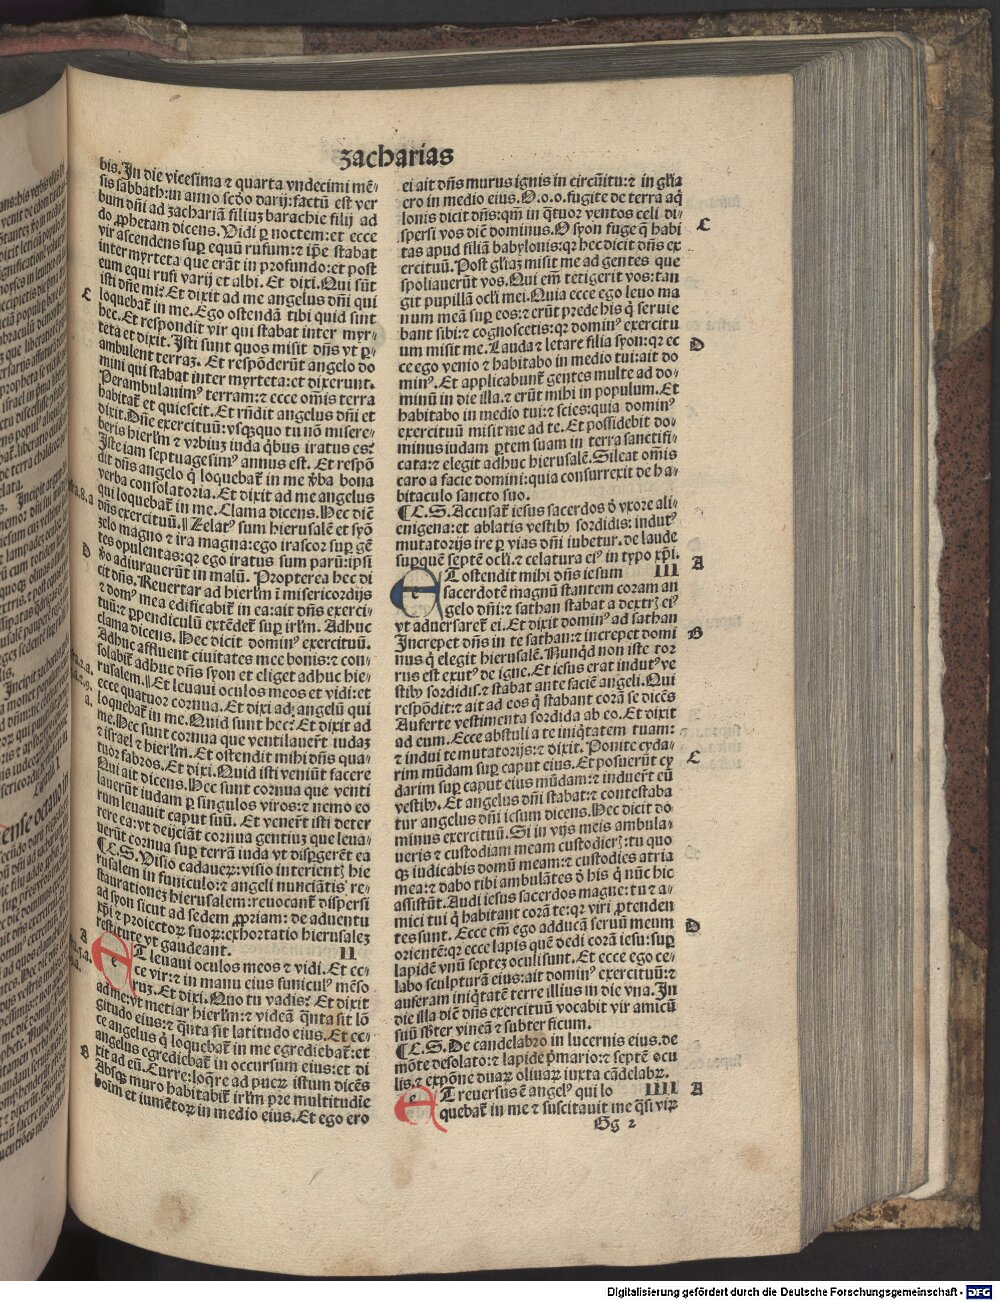 zacharias
bis. In die vicesima ⁊ quarta vndecimi mē⸗
sis sabbath: in anno scdo darij: factū est ver
bum dn̄i ad zachariā filiuz barachie filij ad
do ꝓphetam dicens. Vidi ꝑ noctem: et ecce
vir ascendens suꝑ equū rufum: ⁊ ip̄e stabat
inter myrteta que erāt in profundo: et post
eum equi rufi varij et albi. Et dixi. Qui sūt
isti dn̄e mi? Et dixit ad me angelus dn̄i qui
loquebat̄ in me. Ego ostendā tibi quid sint
hec. Et respondit vir qui stabat inter myr⸗
teta et dixit. Isti sunt quos misit dn̄s vt ꝑ⸗
ambulent terraz. Et respōderūt angelo do
mini qui stabat inter myrteta: et dixerunt.
Perambulauimꝰ terram: ⁊ ecce om̄is terra
habitat̄ et quiescit. Et rn̄dit angelus dn̄i et
dixit. Dn̄e exercituū: vsqzquo tu nō misere⸗
beris hierlm̄ ⁊ vrbiuz iuda q̇bus iratus es?
Iste iam septuagesimꝰ annus est. Et respō
dit dn̄s angelo q̇ loquebat̄ in me v̄ba bona
verba consolatoria. Et dixit ad me angelus
qui loquebat̄ in me. Clama dicens. Hec dic̄
dn̄s exercituū. Zelatꝰ sum hierusalē et syō
zelo magno ⁊ ira magna: ego irascor suꝑ gē
tes opulentas: qꝛ ego iratus sum parū: ipsi
v̄o adiurauerūt in malū. Propterea hec di
cit dn̄s. Reuertar ad hierlm̄ ī misericordijs
⁊ domꝰ mea edificabit̄ in ea: ait dn̄s exerci⸗
tuū: ⁊ ꝑpendiculū extēdet̄ suꝑ irlm̄. Adhuc
clama dicens. Hec dicit dominꝰ exercituū.
Adhuc affluent ciuitates mee bonis: ⁊ con⸗
solabit̄ adhuc dn̄s syon et eliget adhuc hie⸗
rusalem. Et leuaui oculos meos et vidi: et
ecce quatuor cornua. Et dixi ad angelū qui
loquebat̄ in me. Quid sunt hec? Et dixit ad
me. Hec sunt cornua que ventilauer̄t iudaz
⁊ israel ⁊ hierlm̄. Et ostendit mihi dn̄s qua⸗
tuor fabros. Et dixi. Quid isti veniūt facere
Qui ait dicens. Hec sunt cornua que venti
lauerūt iudam ꝑ singulos viros: ⁊ nemo eo
rum leuauit caput suū. Et vener̄t isti deter
rere ea: vt deijciāt cornua gentiuz que leua⸗
uerūt cornua suꝑ terrā iuda vt disꝑgerēt ea
¶ C.S. Visio cadaueꝝ: visio interient̄ hie
rusalem in funiculo: ⁊ angeli nunciātis re⸗
staurationez hierusalem: reuocant̄ dispersi
ad syon sicut ad sedem ꝓpriam: de aduentu
xp̄i ⁊ proiectoꝝ suoꝝ: exhortatio hierusalez
restitute vt gaudeant. II
ET leuaui oculos meos ⁊ vidi. Et ec⸗
ce vir: ⁊ in manu eius funiculꝰ mēso
ruz. Et dixi. Quo tu vadis? Et dixit
ad me: vt metiar hierlm̄: ⁊ videā q̄nta sit lō
gitudo eius: ⁊ q̄nta sit latitudo eius. Et ec⸗
ce angelus q̇ loquebat̄ in me egrediebat̄: et
angelus egrediebat̄ in occursum eius: et di
xit ad eū. Curre: loq̄re ad pueꝝ istum dicēs
Absqz muro habitabit̄ irlm̄ pre multitudīe
hoīm et iumētoꝝ in medio eius. Et ego ero
C
D
A
B
ei ait dn̄s murus ignis in circūitu: ⁊ in gl̄ia
ero in medio eius. O.o.o. fugite de terra aq̇
lonis dicit dn̄s: qm̄ in q̄tuor ventos celi di⸗
spersi vos dic̄ dominus. O syon fuge q̄ habi
tas apud filiā babylonis: qꝛ hec dicit dn̄s ex
ercituū. Post gl̄iaz misit me ad gentes que
spoliauerūt vos. Qui em̄ tetigerit vos: tan
git pupillā ocl̄i mei. Quia ecce ego leuo ma
num meā suꝑ eos: ⁊ erūt prede his q̇ seruie
bant sibi: ⁊ cognoscetis: qꝛ dominꝰ exercitu
um misit me. Lauda ⁊ letare filia syon: qꝛ ec
ce ego venio ⁊ habitabo in medio tui: ait do
minꝰ. Et applicabunt̄ gentes multe ad do⸗
minū in die illa. ⁊ erūt mihi in populum. Et
habitabo in medio tui: ⁊ scies: quia dominꝰ
exercituū misit me ad te. Et possidebit do⸗
minus iudam ꝑtem suam in terra sanctifi⸗
cata: ⁊ elegit adhuc hierusalē. Sileat om̄is
caro a facie domini: quia consurrexit de ha⸗
bitaculo sancto suo.
¶ C.S. Accusat̄ iesus sacerdos ꝙ vxore ali⸗
enigena: et ablatis vestibꝰ sordidis: indutꝰ
mutatorijs ire ꝑ vias dn̄i iubetur. de laude
suꝑquē septē ocl̄i. ⁊ celatura eiꝰ in typo xp̄i.
ET ostendit mihi dn̄s iesum III
sacerdotē magnū stantem coram an
gelo dn̄i: ⁊ sathan stabat a dextr̄ eiꝰ
vt aduersaret̄ ei. Et dixit dominꝰ ad sathan
Increpet dn̄s in te sathan: ⁊ increpet domi
nus q̇ elegit hierusalē. Nunqd̄ non iste tor
rus est exutꝰ de igne. Et iesus erat indutꝰ ve
stibꝰ sordidis. ⁊ stabat ante faciē angeli. Qui
respōdit: ⁊ ait ad eos q̇ stabant corā se dicēs
Auferte vestimenta sordida ab eo. Et dixit
ad eum. Ecce abstuli a te iniq̇tatem tuam:
⁊ indui te mutatorijs: ⁊ dixit. Ponite cyda⸗
rim mūdam suꝑ caput eius. Et posuerūt cy
darim suꝑ caput eius mūdam: ⁊ induer̄t eū
vestibꝰ. Et angelus dn̄i stabat: ⁊ contestaba
tur angelus dn̄i iesum dicens. Hec dicit do⸗
minus exercituū. Si in vijs meis ambula⸗
ueris ⁊ custodiam meam custodier̄: tu quo
qz iudicabis domū meam: ⁊ custodies atria
mea: ⁊ dabo tibi ambulātes ꝺ his q̇ nūc hic
assistūt. Audi iesus sacerdos magne: tu ⁊ a⸗
mici tui q̇ habitant corā te: qꝛ viri ꝑtenden
tes sunt. Ecce em̄ ego adducā seruū meum
orientē: qꝛ ecce lapis quē dedi corā iesu: suꝑ
lapidē vnū septez oculi sunt. Et ecce ego ce⸗
labo sculpturā eius: ait dominꝰ exercituū: ⁊
auferam iniq̇tatē terre illius in die vna. In
die illa dic̄ dn̄s exercituū vocabit vir amicū
suū sb̄ter vineā ⁊ subter ficum.
¶ C.S. De candelabro in lucernis eius. de
mōte desolato: ⁊ lapide p̄mario: ⁊ septē ocu
lis. ⁊ expōne duaꝝ oliuaꝝ iuxta cādelabꝝ.
ET reuersus ē angelꝰ qui lo IIII
quebat̄ in me ⁊ suscitauit me q̄si viꝝ
Gg 2
C
D
A
B
C
D
A
Digitalisierung gefördert durch die Deutsche Forschungsgemeinschaft - DFG